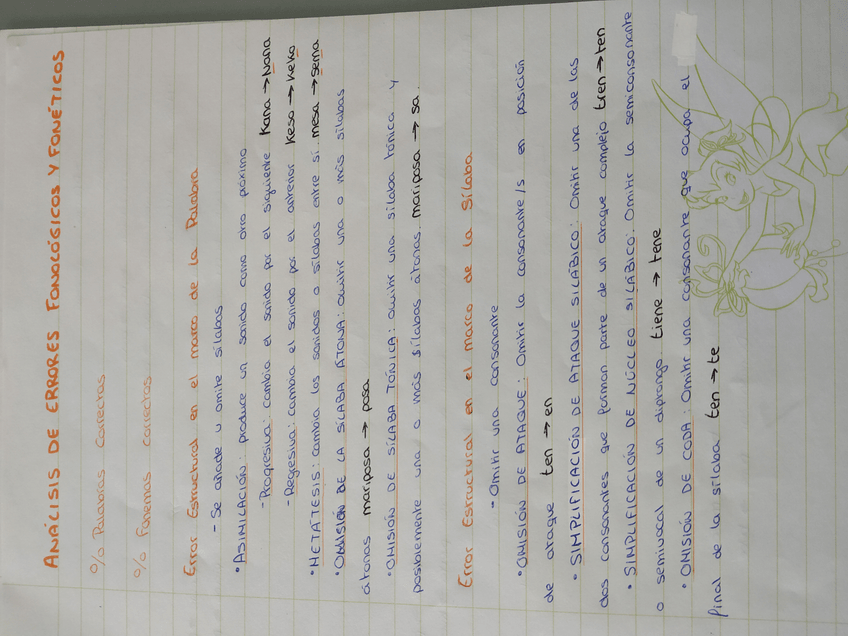 ANÁLISIS DE ERRORES FONOLÓGICOS Y FONÉTICOS
% Palabras correctas
% Fonemas correctos
Error Estructural en el marco de la Palabra
- Se añade u omite sílabas
• ASIMILACIÓN: produce un sonido como otro próximo
- Progresiva: cambia el sonido por el siguiente Kana → Nana
- Regresiva: cambia el sonido por el anterior Keso → Keko
• METÁTESIS: cambia los sonidos o sílabas entre sí. mesa → sema
• OMISIÓN DE LA SÍLABA ÁTONA: omitir una o más sílabas
átonas mariposa → posa
• OMISIÓN DE SÍLABA TÓNICA: omitir una sílaba tónica y
posiblemente una o más sílabas átonas. mariposa → sa.
Error Estructural en el marco de la Sílaba
- Omitir una consonante
• OMISIÓN DE ATAQUE: Omitir la consonante/s en posición
de ataque ten → en
• SIMPLIFICACIÓN DE ATAQUE SILÁBICO: Omitir una de las
dos consonantes que forman parte de un ataque complejo tren → ten
• SIMPLIFICACIÓN DE NÚCLEO SILÁBICO: Omitir la semiconsonante
o semivocal de un diptongo tiene → tene
• OMISIÓN DE CODA: Omitir una consonante que ocupa el
final de la sílaba ten → te